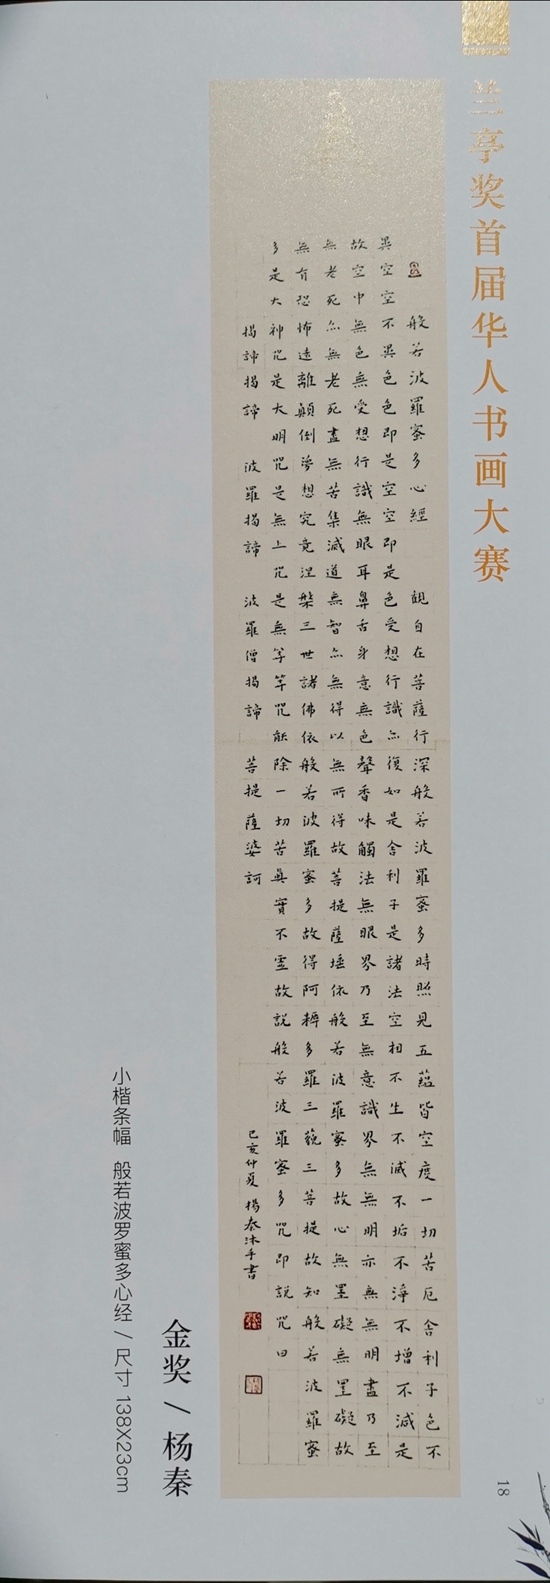 兰亭奖首届华人书画大赛
般若波羅蜜多心經 觀自在菩薩行深般若波羅蜜多時照見五蘊皆空度一切苦厄舍利子色不
異空空不異色色即是空空即是色受想行識亦復如是舍利子是諸法空相不生不滅不垢不淨不增不減是
故空中無色無受想行識無眼耳鼻舌身意無色聲香味觸法無眼界乃至無意識界無無明亦無無明盡乃至
無老死亦無老死盡無苦集滅道無智亦無得以無所得故菩提薩埵依般若波羅蜜多故心無罣礙無罣礙故
無有恐怖遠離顛倒夢想究竟涅槃三世諸佛依般若波羅蜜多故得阿耨多羅三藐三菩提故知般若波羅蜜
多是大神咒是大明咒是無上咒是無等等咒能除一切苦真實不虛故說般若波羅蜜多咒即說咒曰
揭諦揭諦 波羅揭諦 波羅僧揭諦 菩提薩婆訶
己亥仲夏 楊秦沐手書
金奖 / 杨秦
小楷条幅 般若波罗蜜多心经 / 尺寸 138X23cm
18